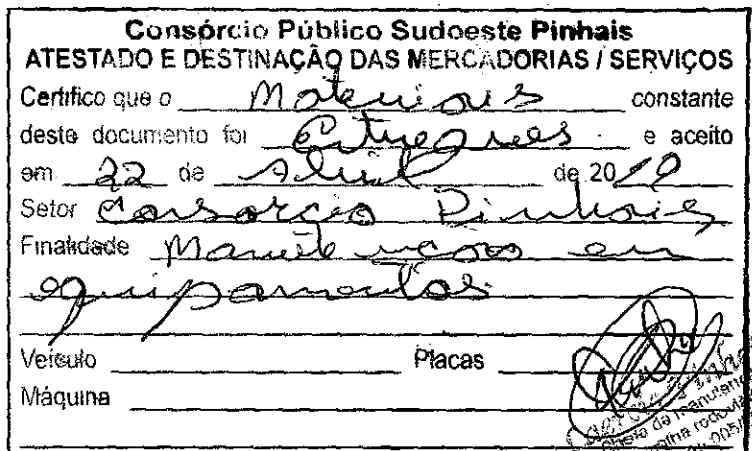 Consórcio Público Sudoeste Pinhais
ATESTADO E DESTINAÇÃO DAS MERCADORIAS / SERVIÇOS
Certifico que o Materiais constante
deste documento foi Entregues e aceito
em 22 de Abril de 20
Setor Consorcio Pinhais
Finalidade Manutencao em
equipamentos
Veículo Placas
Máquina